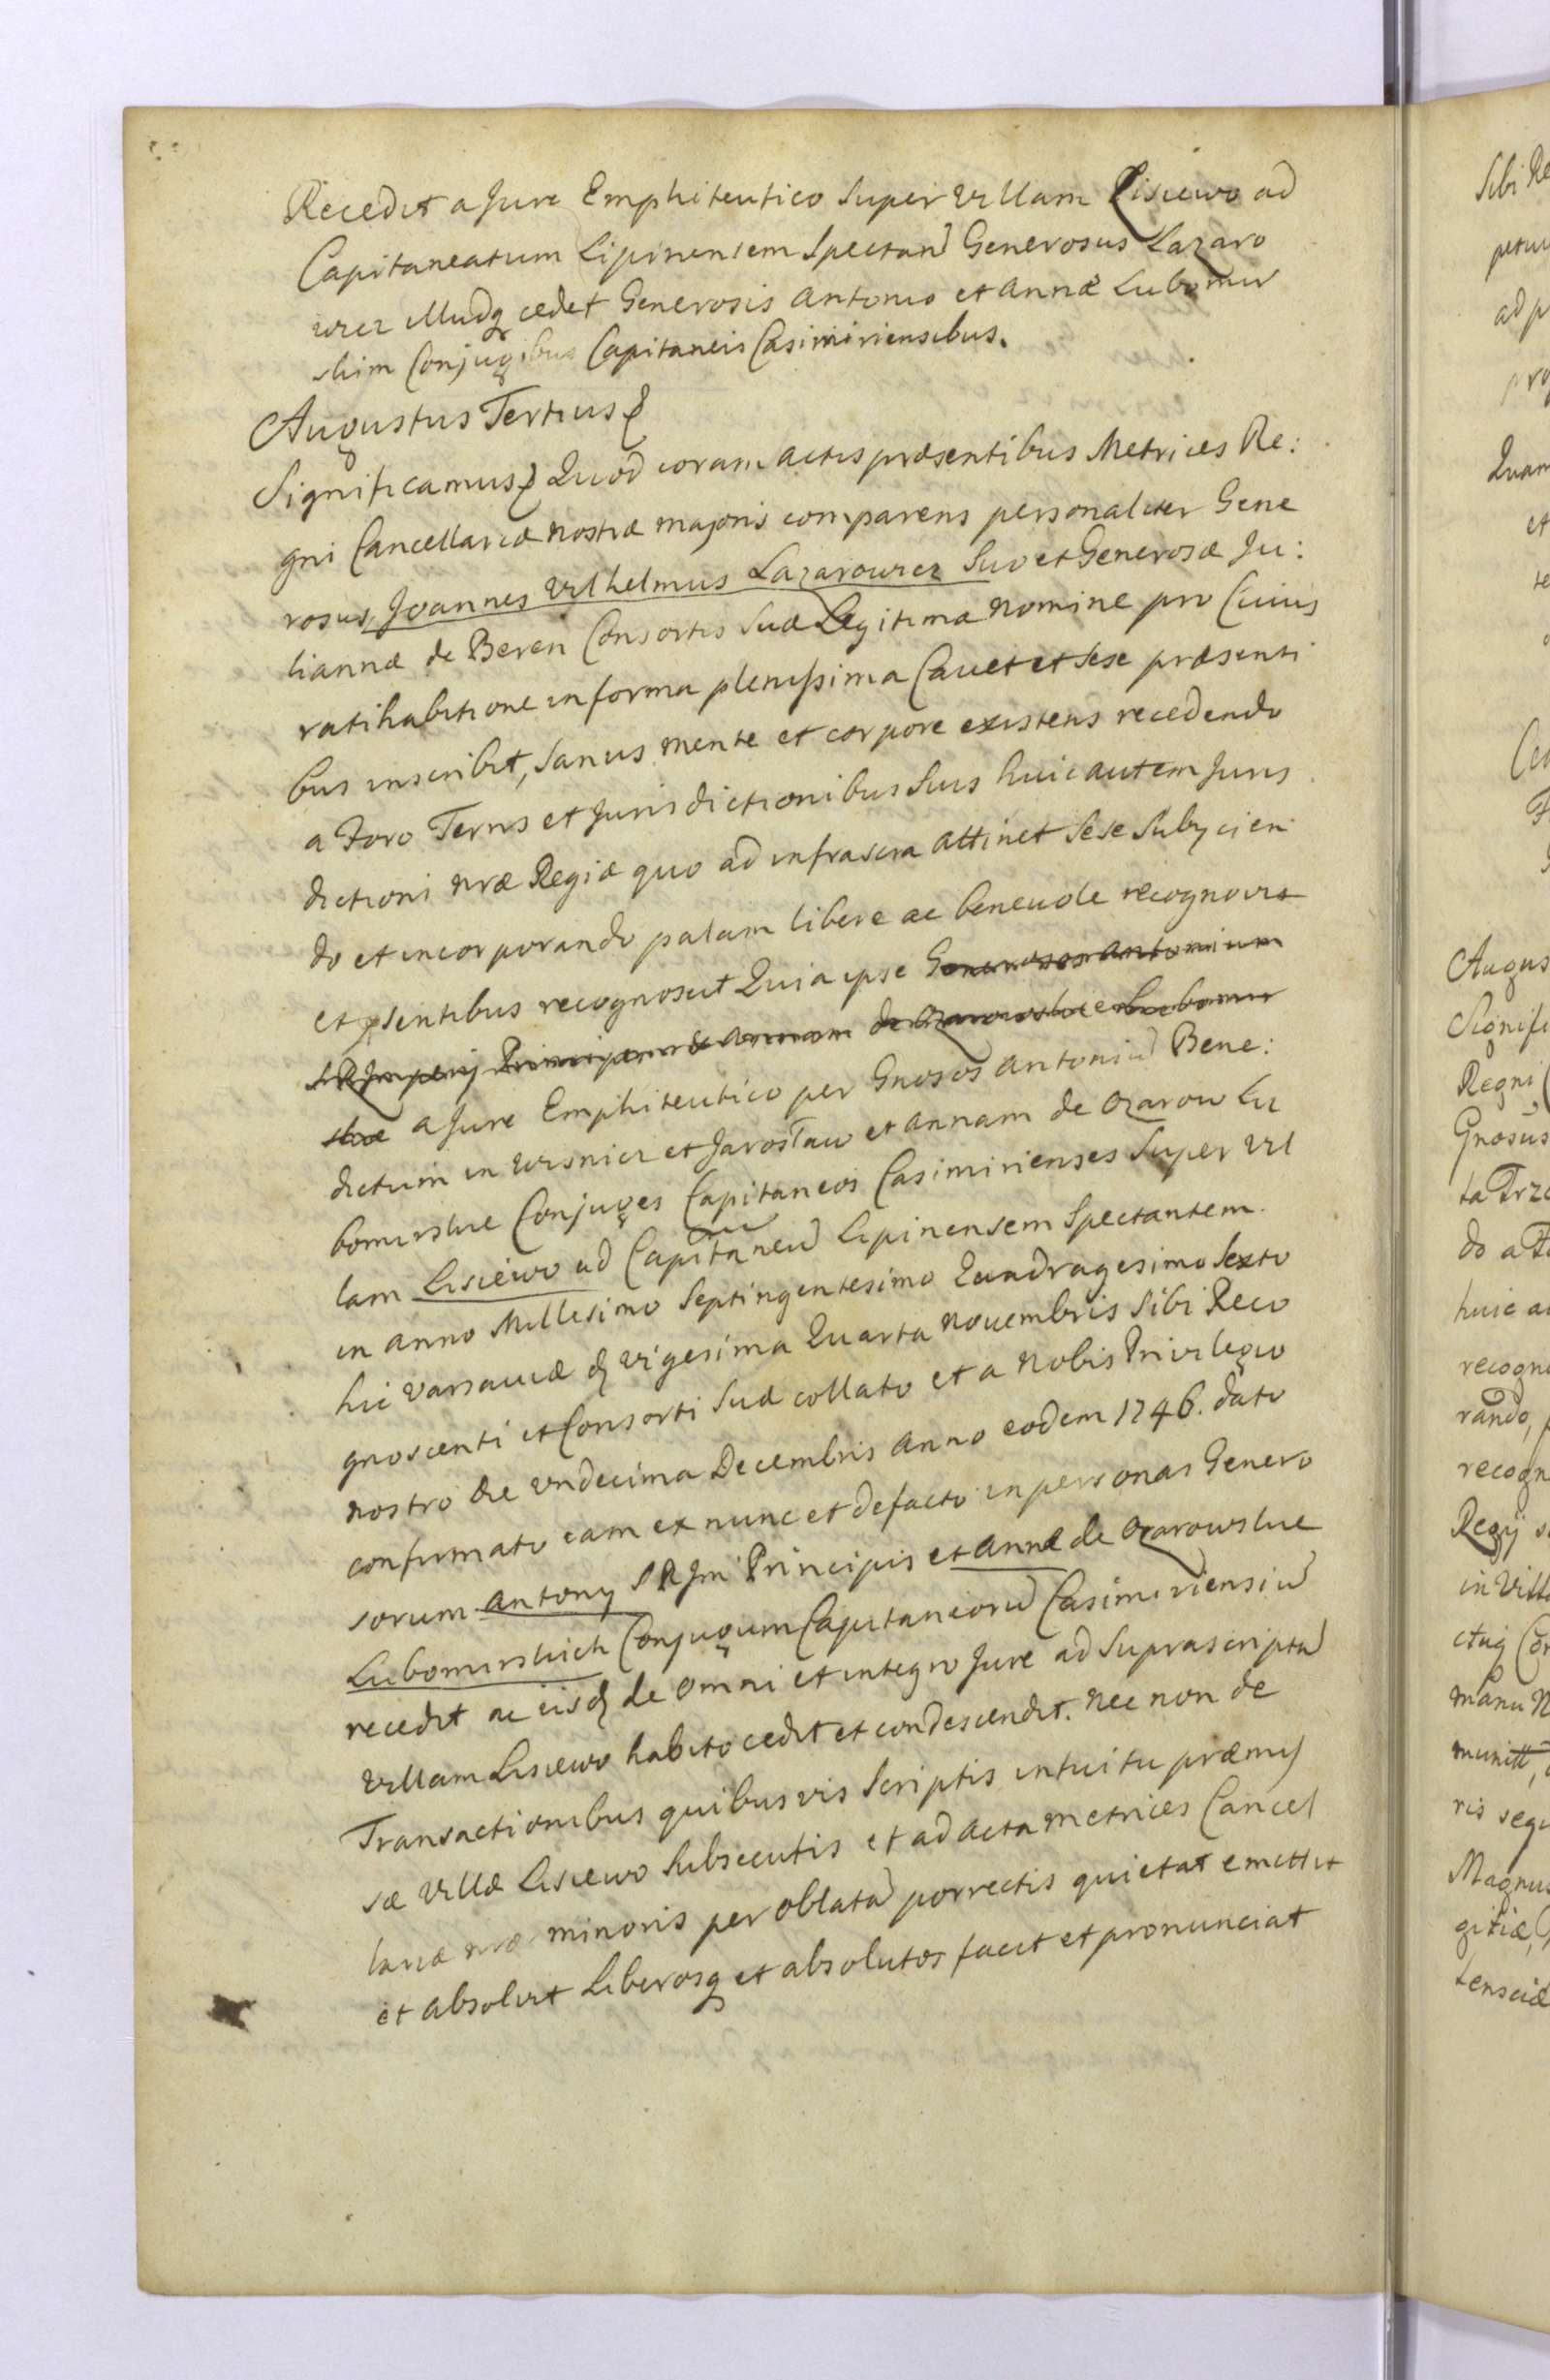 Recedit a Jure Emphiteutico super Villam Lisiewo ad
Capitaneatum Lipinensem Spectand Generosus Lazaro
wicz illudq cedet Generosis Antonio et Annæ Lubomir
skim Conjugibus Capitaneis Casimiriensibus.
Augustus Tertius
Significamus Quod coram actis præsentibus Metrices Re:
gni Cancellariæ nostræ majoris comparens personaliter Gene
rosus Joannes Vilhelmus Lazarowicz Suo et Generosæ Ju:
liannæ de Beren Consortis Suæ Legitimæ nomine pro Cuius
ratihabitione in forma plenissima Cauet et sese præsenti
bus inscribit, Sanus mente et corpore existens recedendo
a Foro Terris et Jurisdictionibus Suis huic autem Juris
dictioni nræ Regiæ quo ad infrascra attinet Sese Subycien
do et incorporando palam libere ac beneuole recognouit
et psentibus recognoscit Quia ipse Generosos Antonium
S R Imperij Principem et Annam de Ozarowskie Lubomir
skæ a Jure Emphiteutico per Gnosos Antoniu Bene:
dictum in Wisnicz et Jarosław et Annam de Ozarow Lu
bomirskie Conjuges Capitaneos Casimirienses Super Vil
lam Lisiewo ad Capitaneu Lipinensem Spectantem
in anno Millesimo Septingentesimo Quadragesimo Sexto
hic Varsauiæ d Vigesima Quarta Nouembris Sibi Reco
gnoscenti et Consorti Suæ collato et a Nobis Privilegio
nostro die Vndecima Decembris Anno eodem 1746. dato
confirmato eam ex nunc et defacto in personas Genero
sorum Antony S R Im Principis et Annæ de Ozarowskie
Lubomirskich Conjugum Capitaneoru Casimiriensiu
recedit ac eisd de omni et integro Jure ad Suprascripta
Villam Lisiewo habito cedit et condescendit. nec non de
Transactionibus quibusvis Scriptis intuitu præmis
sæ Villæ Lisiewo Subsecutis et ad Acta Metrices Cancel
lariæ nræ minoris per oblata porrectis quietat emittit
et absolvit Liberosq et absolutos facit et pronunciat
Sibi Re
petuu
ad p
pro
Quam
et
te
Augus
Signifi
Regni
Gnosus
ta Trze
do a Fo
huic au
recogno
rando,
recogn
Regij
in Villa
ctaq Con
manu N
munitt,
ris segu
Magnus
gitiæ,
tensciæ